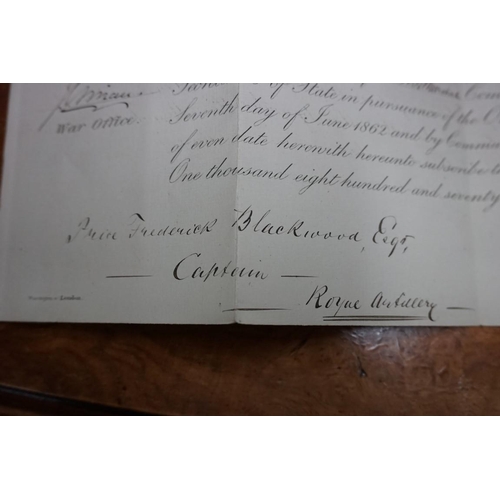 of State in pursuance of the
War Office. Seventh day of June 1862 and by
of even date herewith hereunto subscribe
One thousand eight hundred and seventy
Price Frederick Blackwood, Esqr,
Captain
Royal Artillery
London